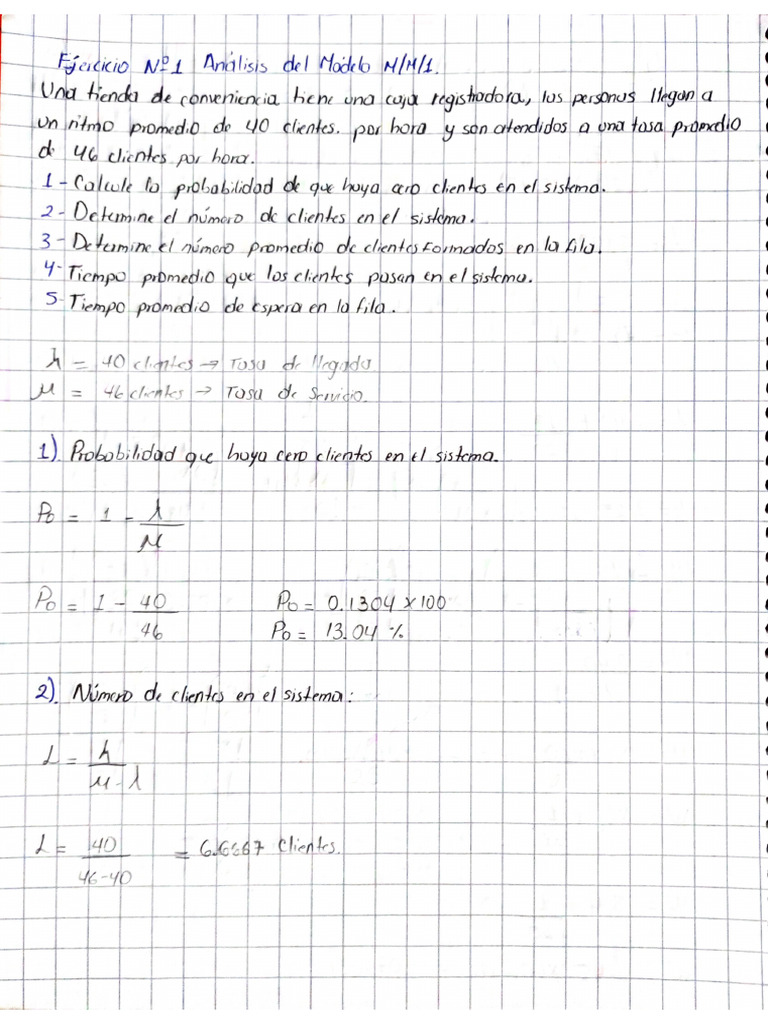 Ejercicio Nº1 Análisis del Modelo M/M/1.
Una tienda de conveniencia tiene una caja registradora, las personas llegan a
un ritmo promedio de 40 clientes. por hora y son atendidos a una tasa promedio
de 46 clientes por hora.
1- Calcule la probabilidad de que haya cero clientes en el sistema.
2- Determine el número de clientes en el sistema.
3- Determine el número promedio de clientes formados en la fila.
4- Tiempo promedio que los clientes pasan en el sistema.
5- Tiempo promedio de espera en la fila.
λ = 40 clientes → Tasa de llegada
μ = 46 clientes → Tasa de Servicio.
1). Probabilidad que haya cero clientes en el sistema.
P0 = 1 - λ
μ
P0 = 1 - 40 P0 = 0.1304 x 100
46 P0 = 13.04 %
2). Número de clientes en el sistema:
L = λ
μ - λ
L = 40 = 6.6667 Clientes.
46-40